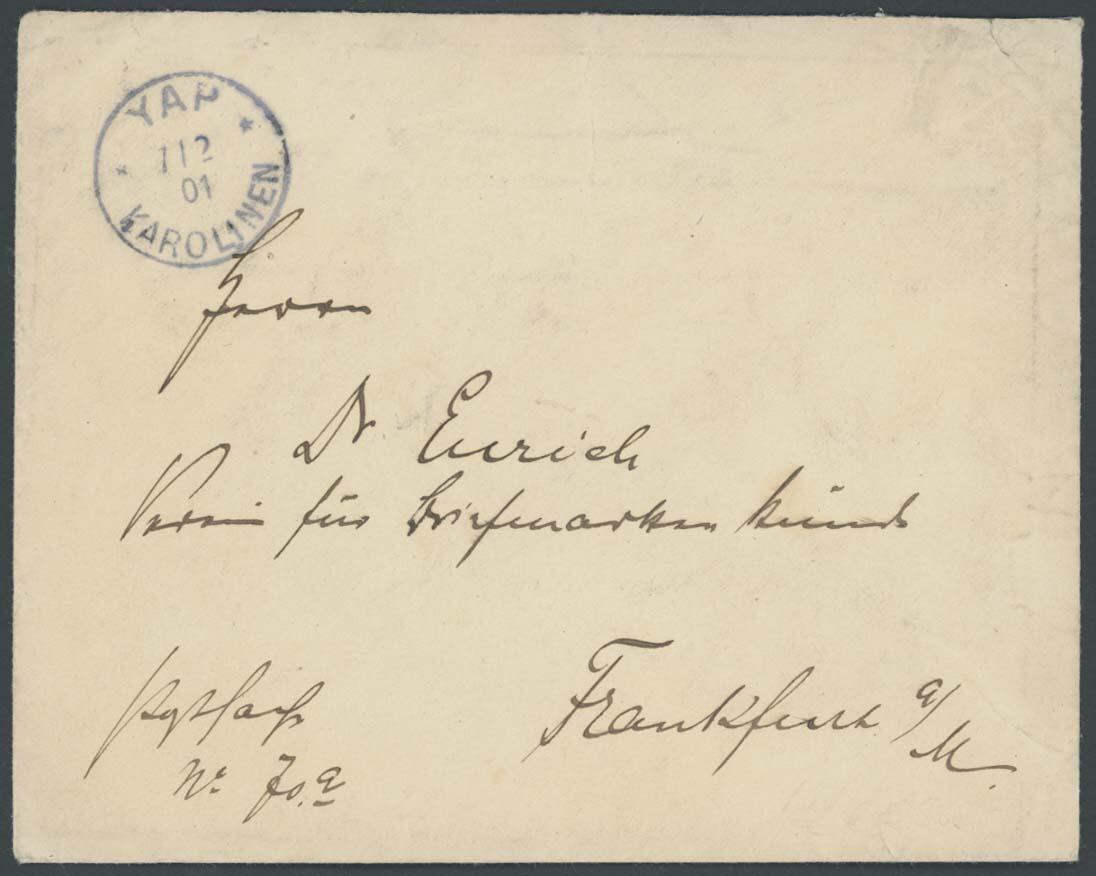 YAP
7 12
01
KAROLINEN
Herrn
Dr Emrich
Verein für Briefmarken kunde
Postfach
Frankfurt a/M.
No 70.a